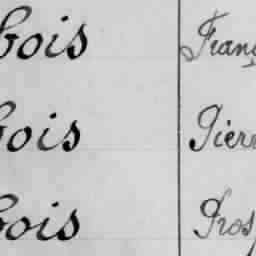 bois Franç
bois Pierr
bois Prosp